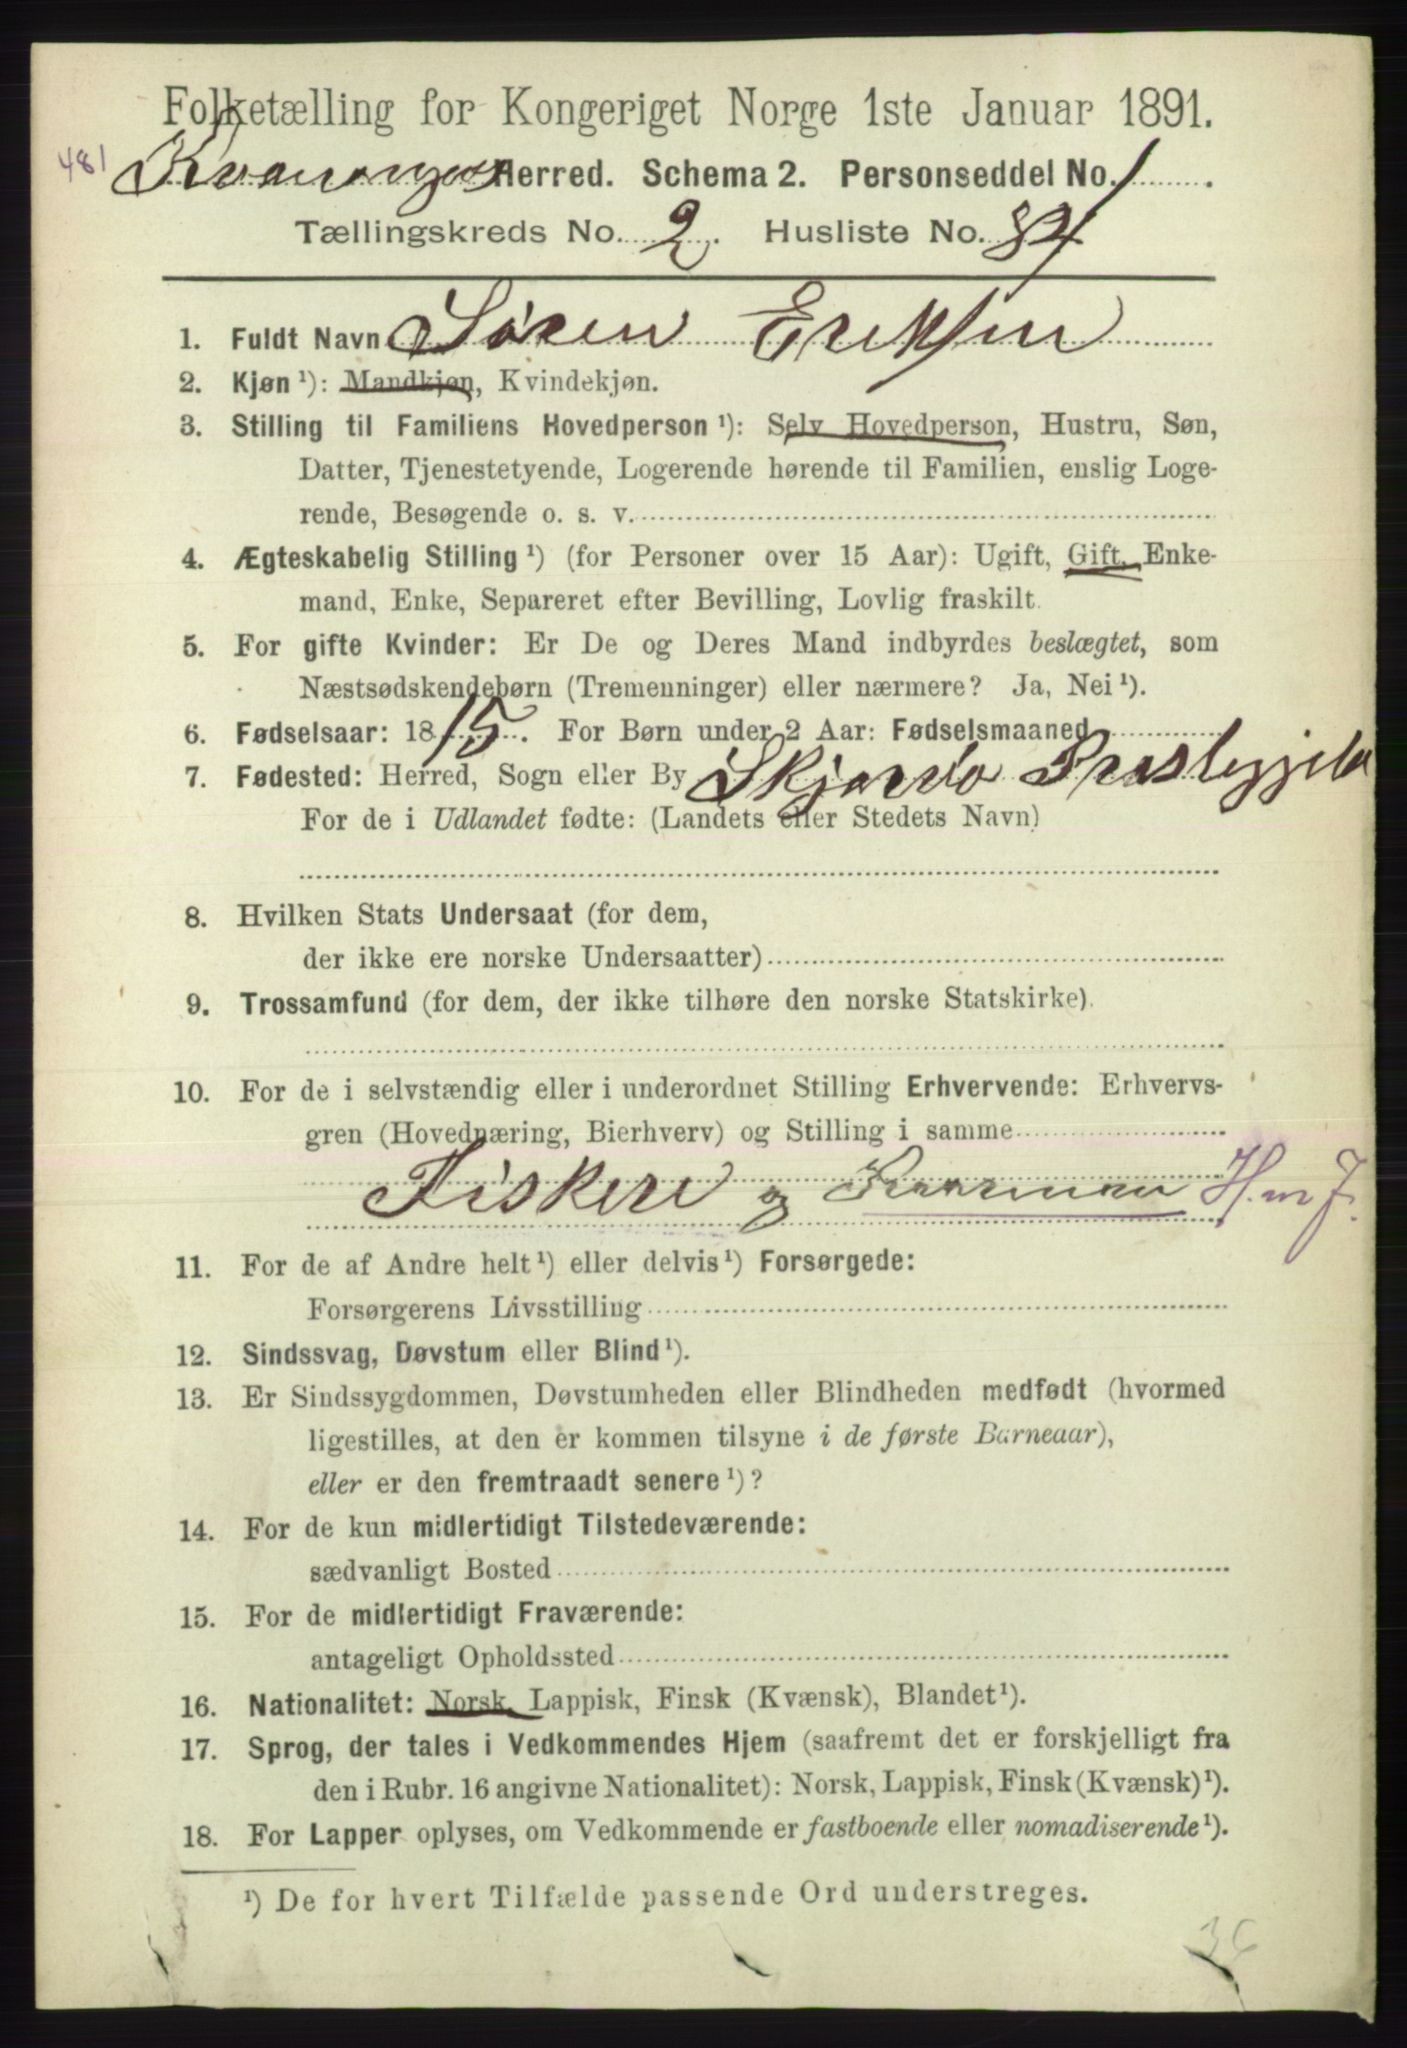 Folketælling for Kongeriget Norge 1ste Januar 1891.
481
Kvænangen Herred. Schema 2. Personseddel No. 1
Tællingskreds No. 2. Husliste No. 84
1. Fuldt Navn Søren Eriksen
2. Kjøn ¹): Mandkjøn, Kvindekjøn.
3. Stilling til Familiens Hovedperson ¹): Selv Hovedperson, Hustru, Søn,
Datter, Tjenestetyende, Logerende hørende til Familien, enslig Loge-
rende, Besøgende o. s. v.
4. Ægteskabelig Stilling ¹) (for Personer over 15 Aar): Ugift, Gift, Enke-
mand, Enke, Separeret efter Bevilling, Lovlig fraskilt.
5. For gifte Kvinder: Er De og Deres Mand indbyrdes beslægtet, som
Næstsødskendebørn (Tremenninger) eller nærmere? Ja, Nei ¹).
6. Fødselsaar: 1815. For Børn under 2 Aar: Fødselsmaaned
7. Fødested: Herred, Sogn eller By Skjervø Præstegjeld
For de i Udlandet fødte: (Landets eller Stedets Navn)
8. Hvilken Stats Undersaat (for dem,
der ikke ere norske Undersaatter)
9. Trossamfund (for dem, der ikke tilhøre den norske Statskirke).
10. For de i selvstændig eller i underordnet Stilling Erhvervende: Erhvervs-
gren (Hovednæring, Bierhverv) og Stilling i samme
Fiskeri og H. m J.
11. For de af Andre helt ¹) eller delvis ¹) Forsørgede:
Forsørgerens Livsstilling
12. Sindssvag, Døvstum eller Blind ¹).
13. Er Sindssygdommen, Døvstumheden eller Blindheden medfødt (hvormed
ligestilles, at den er kommen tilsyne i de første Barneaar),
eller er den fremtraadt senere ¹)?
14. For de kun midlertidigt Tilstedeværende:
sædvanligt Bosted
15. For de midlertidigt Fraværende:
antageligt Opholdssted
16. Nationalitet: Norsk, Lappisk, Finsk (Kvænsk), Blandet ¹).
17. Sprog, der tales i Vedkommendes Hjem (saafremt det er forskjelligt fra
den i Rubr. 16 angivne Nationalitet): Norsk, Lappisk, Finsk (Kvænsk) ¹).
18. For Lapper oplyses, om Vedkommende er fastboende eller nomadiserende ¹).
¹) De for hvert Tilfælde passende Ord understreges.